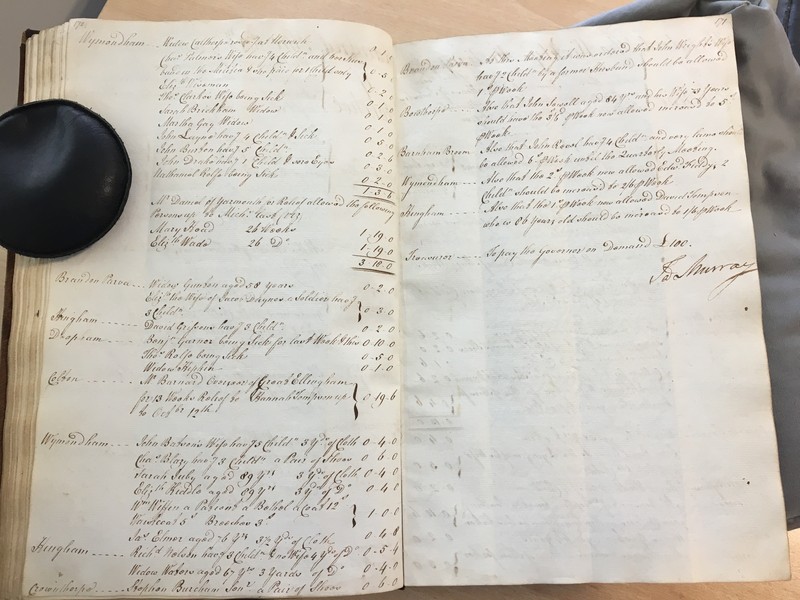 170
Wymondham Widow Calthorpe
Cha.s Palmers Wife hav.g 4 Child.n and
Eliz.th Wiseman
Tho.s Carters Wife being Sick 0.1.0
Sarah Brickham Widow 0.1.0
Martha Gay Widow 0.1.0
John Layne hav.g 4 Child.n & Sick
John Burton hav.g 5 Child.n
John Drake hav.g 1 Child &
Nathaniel Rolfe being Sick 0.2.0
1.5.6
Mr. Daniel of Garmonds, or Relief allowed the following
Persons up to Mich.s last, viz.
Mary Hoord 26 Weeks 1.19.0
Eliz.th Wade 26 D.o 1.19.0
3.18.0
Brandon Parva Widow Gunton aged 58 Years 0.2.0
Eliz. the Wife of Jacob a Soldier hav.g
3 Child.n 0.3.0
Hingham David Grifsons hav.g 3 Child.n 0.2.0
Deopham Benj.n Garner being Sick for last Week & this 0.10.0
Tho.s Rolfe being Sick 0.5.0
Widow 0.1.0
Colton Mr. Barnard Overseer of Great Ellingham
for 13 Weeks Relief to Hannah Tompson up
to Oct.br 12th 0.19.6
Wymondham John Batson's Wife hav.g 3 Child.n 3 Y.ds of Cloth 0.4.0
Cha.s Blazy hav.g 3 Child.n a Pair of Shoes 0.6.0
Sarah Juby aged 89 Y.rs 3 Y.ds of Cloth 0.4.0
Eliz.th Kiddle aged 69 Y.rs 3 Y.ds of D.o 0.4.0
W.m a & Coat 12s
Waistcoat 5s Breeches 3s 1.0.0
Ja.s Elmer aged Y.rs 3½ Y.ds of Cloth 0.4.8
Hingham Rich.d Nelson hav.g 3 Child.n & no Wife 4 Y.ds of D.o 0.5.4
Widow Waters aged 67 Y.rs 3 Yards of D.o 0.4.0
Crownthorpe Stephen Burcham Sen.r a Pair of Shoes 0.6.0
171
Brandon Parva At this Meeting it was ordered that John Wright's Wife
hav.g Child.n by a former Husband should be allowed
1s ⅌ Week
Bowthorpe Also that John Sewell aged 84 Y.rs and his Wife Years
should have the 3s/6d ⅌ Week now allowed increased to 5s
⅌ Week
Barnham Broom Also that John Royal hav.g 4 Child.n and very lame sho.d
be allowed 6s ⅌ Week until the Quarterly Meeting.
Wymondham Also that the 2s ⅌ Week now allowed Edw.d 2
Child.n should be increased to 2/6 ⅌ Week
Hingham Also that the 1s ⅌ Week now allowed Daniel Tompson
who is 86 Years old should be increased to 1/6 ⅌ Week
Treasurer To pay the Governor on Demand £100.
Ja.s Murray